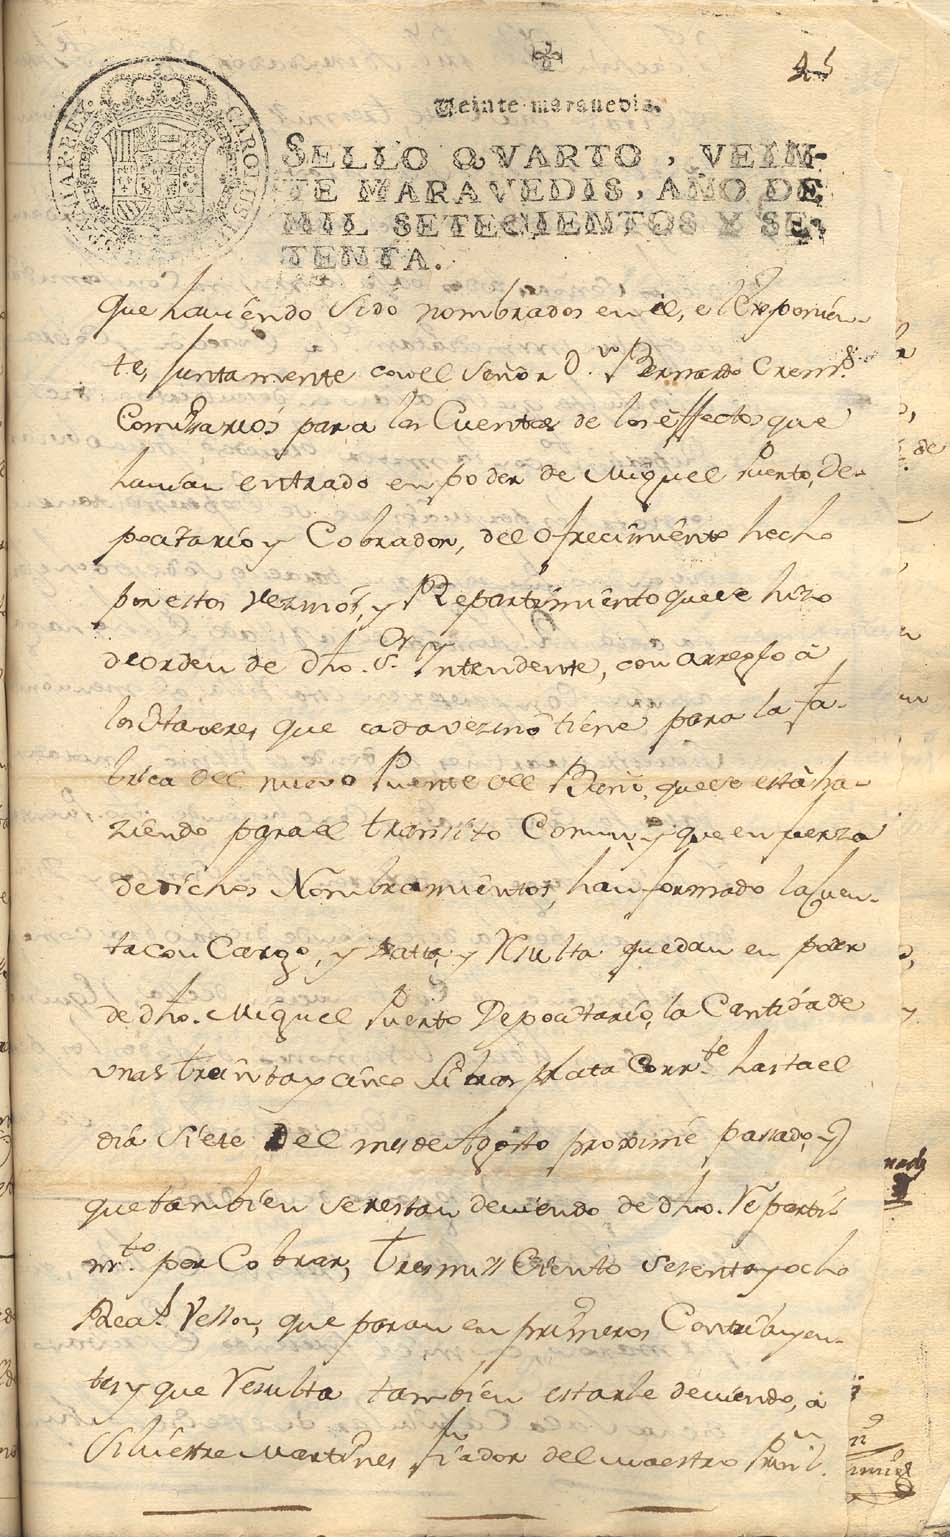 45
Veinte maravedis.
SELLO QVARTO, VEIN-
TE MARAVEDIS, AÑO DE
MIL SETECIENTOS Y SE-
TENTA.
CAROLUS III
HISPANIAR. REX
que haviendo sido nombrados en él, el Exponien-
te, juntamente con el Señor D.n Bernardo
Comisarios para las Cuentas de los effectos que
havían entrado en poder de Miguel Puerto, De-
pocitario y Cobrador, del ofrecimiento hecho
por estos vezinos, y Repartimiento que se hizo
de orden de dho. Sr. Yntendente, con arreglo â
los que cada vezino tiene para la fa-
brica del nuevo Puente del que se está ha-
ziendo para el transito Comun, y que en fuerza
de dichos Nombramientos, han formado la Cuen-
ta con Cargo, y Datta, y Resulta quedan en poder
de dho. Miguel Puerto Depocitario, la Cantidad de
unas treinta y cinco Libras plata Corr.te hasta el
dia siete del mes de Agosto proximè passado, y
que tambien se restan deviendo de dho. Reparti-
m.to por Cobrar, tres mill Ciento sesenta y ocho
Rea.s Vellon, que paran en primeros Contribuyen-
tes, y que Resulta tambien estarle deviendo, a
Silvestre Martines fiador del maestro